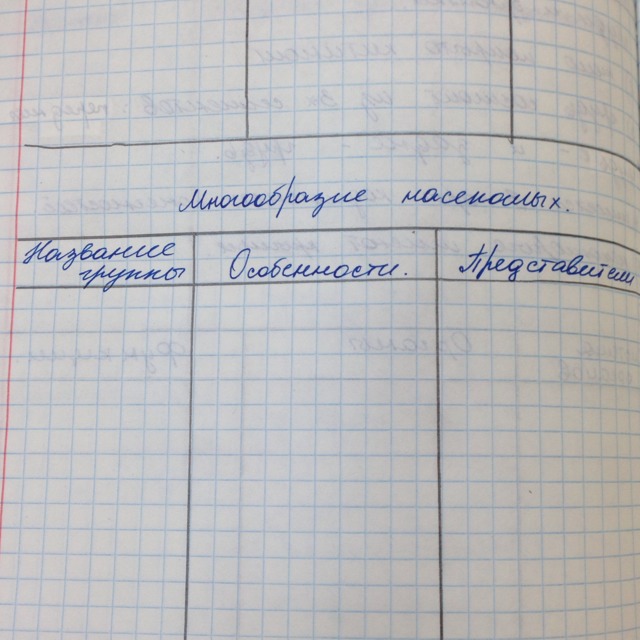 Многообразие насекомых.
Название
группы
Особенности.
Представители